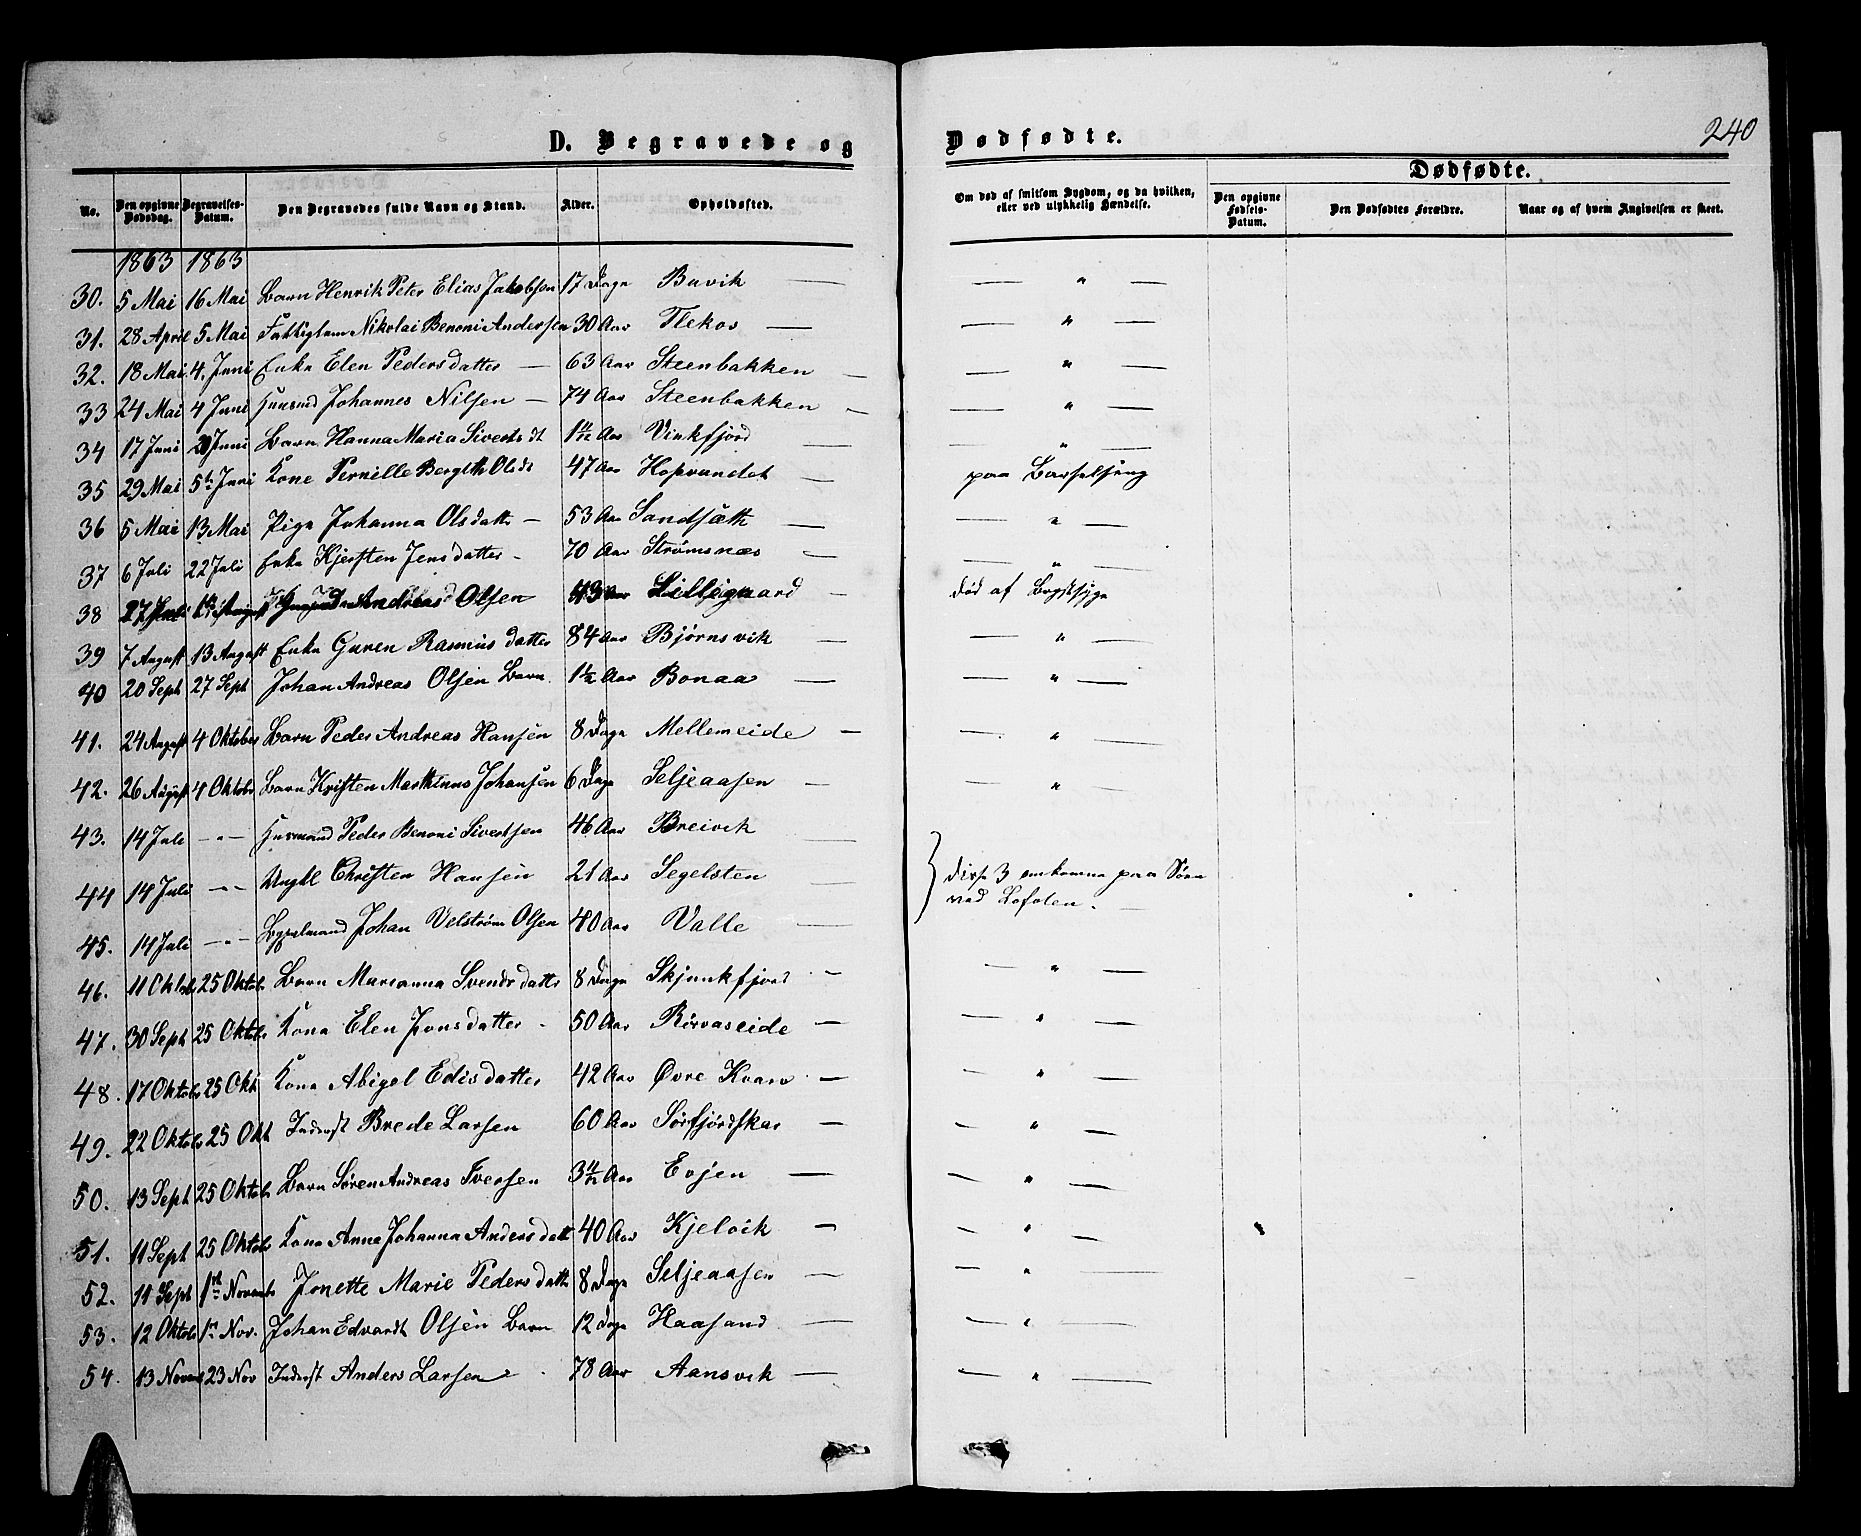 D. Begravede og Dødfødte. 240
Dødfødte.
No. Den opgivne Dødsdag. Begravelses-Datum. Den Begravedes fulde Navn og Stand. Alder. Opholdssted. Om død af smitsom Sygdom, og da hvilken, eller ved ulykkelig Hændelse. Den opgivne Fødsels-Datum. Den Dødfødtes Forældre. Naar og af hvem Angivelsen er skeet.
1863 1863
30. 5 Mai 16 Mai Barn Henrik Peter Elias Jakobsen 17 Dage Buvik — — " —
31. 28 April 5 Mai Fattiglem Nikolai Benoni Andersen 30 Aar — — " —
32. 18 Mai 4. Juni Enke Elen Pedersdatter — 63 Aar Steenbakken — — " —
33 24 Mai 4 Juni Huusmd Johannes Nilsen — 74 Aar Steenbakken — — " —
34 17 Juni Juni Barn Hanna Maria Siverts dt 1 11/12 Aar Vinkfjord — — " —
35 29 Mai 5te Juni Kone Pernille Bergith Olsdt 47 Aar Hopvandet — paa Barselseng
36 5 Mai 13 Mai Pige Johanna Olsdatt — 53 Aar Sandsæth — — " —
37 6 Juli 22 Juli Enke Kjersten Jensdatter - 70 Aar Strømsnæs — — " —
38 27 Juli August Andreas Olsen 43 Aar Lillegaard — død af Brystsyge
39 7 August 13 August Enke Guren Rasmusdatter 84 Aar Bjørnsvik — — " —
40 20 Sept 27 Sept Johan Andreas Olsen Barn 1 1/2 Aar Bonaa — — " —
41. 24 August 4 Oktober Barn Peder Andreas Hansen 8 Dage Mellemeide — — " —
42. 26 August 4 Oktobr Barn Kristen Marthinus Johansen 6 Dage Seljeaasen — — " —
43. 14 Juli — " — Husmand Peder Benoni Sivertsen 46 Aar Breivik —
44 14 Juli — " — Ungkl Christen Hansen 21 Aar Segelsten — } disse 3 omkomne paa Søen
45. 14 Juli — " — Johan Velstrøm Olsen 40 Aar Valle — ved Lofoten. —
46. 11 Oktob 25 Oktob Barn Marianna Svendsdatter 8 Dage Skjunkfjord — — " —
47. 30 Sept 25 Oktob Kone Elen Jonsdatter - 50 Aar Rörvaseide — — " —
48. 17 Oktob 25 Okt Kone Abigel Edisdatter 42 Aar Øvre Kvarv — — " —
49. 22 Oktob 25 Okt Inderst Brede Larsen 60 Aar Sørfjordskar — — " —
50. 13 Sept 25 Oktob Barn Søren Andreas Iversen 3 11/12 Aar Evjen — — " —
51. 11 Sept 25 Oktob Kone Anna Johanna Andersdatt 40 Aar Kjelvik — — " —
52. 11 Sept 1ste Novemb Jonette Marie Pedersdatt 8 Dage Seljeaasen — — " —
53. 12 Oktob 1ste Nov. Johan Edvardt Olsen Barn 12 Dage Haasand — — " —
54. 13 Novem 23 Nov Inderst Anders Larsen 78 Aar Aansvik — — " —